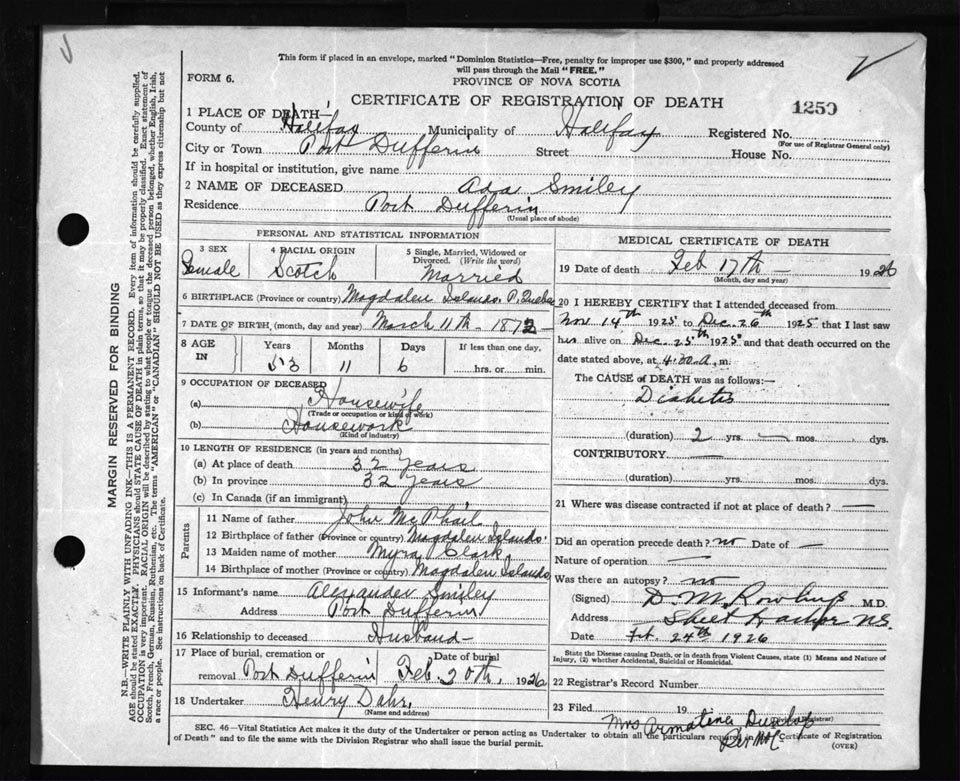 This form if placed in an envelope, marked "Dominion Statistics—Free, penalty for improper use $300," and properly addressed
will pass through the Mail "FREE."
FORM 6.
PROVINCE OF NOVA SCOTIA
CERTIFICATE OF REGISTRATION OF DEATH
1259
1 PLACE OF DEATH
County of Halifax Municipality of Halifax Registered No.
(For use of Registrar General only)
City or Town Port Dufferin Street House No.
If in hospital or institution, give name
2 NAME OF DECEASED Ada Smiley
Residence Port Dufferin
(Usual place of abode)
PERSONAL AND STATISTICAL INFORMATION
3 SEX
Female
4 RACIAL ORIGIN
Scotch
5 Single, Married, Widowed or
Divorced. (Write the word)
Married
6 BIRTHPLACE (Province or country) Magdalen Islands, P. Quebec
7 DATE OF BIRTH (month, day and year) March 11th - 1872
8 AGE
IN
Years
53
Months
11
Days
6
If less than one day,
hrs. or min.
9 OCCUPATION OF DECEASED
(a) Housewife
(Trade or occupation or kind of work)
(b) Housework
(Kind of industry)
10 LENGTH OF RESIDENCE (in years and months)
(a) At place of death 32 years
(b) In province 32 years
(c) In Canada (if an immigrant)
Parents
11 Name of father John McPhail
12 Birthplace of father (Province or country) Magdalen Islands.
13 Maiden name of mother Myra Clark
14 Birthplace of mother (Province or country) Magdalen Islands
15 Informant's name Alexander Smiley
Address Port Dufferin
16 Relationship to deceased Husband—
17 Place of burial, cremation or
removal Port Dufferin
Date of burial
Feb. 20th, 1926
18 Undertaker Henry
(Name and address)
MEDICAL CERTIFICATE OF DEATH
19 Date of death Feb 17th — 1926
(Month, day and year)
20 I HEREBY CERTIFY that I attended deceased from
Nov 14th 1925 to Dec. 26th 1925 that I last saw
her alive on Dec. 25th 1925 and that death occurred on the
date stated above, at 4:30 A. m.
The CAUSE of DEATH was as follows:—
Diabetes
(duration) 2 yrs. — mos. dys.
CONTRIBUTORY —
(duration) yrs. mos. dys.
21 Where was disease contracted if not at place of death? —
Did an operation precede death? no Date of —
Nature of operation —
Was there an autopsy? no
(Signed) D. M. Rowlings M.D.
Address Sheet Harbor N.S.
Date Feb. 24th 1926
State the Disease causing Death, or in death from Violent Causes, state (1) Means and Nature of
Injury, (2) whether Accidental, Suicidal or Homicidal.
22 Registrar's Record Number
23 Filed 19
(Division Registrar)
Mrs Dunlop
SEC. 46—Vital Statistics Act makes it the duty of the Undertaker or person acting as Undertaker to obtain all the particulars required in the Certificate of Registration
of Death" and to file the same with the Division Registrar who shall issue the burial permit.
(OVER)
MARGIN RESERVED FOR BINDING
N.B.—WRITE PLAINLY WITH UNFADING INK—THIS IS A PERMANENT RECORD. Every item of information should be carefully supplied.
AGE should be stated EXACTLY. PHYSICIANS should STATE CAUSE OF DEATH in plain terms, so that it may be properly classified. Exact statement of
OCCUPATION is very important. RACIAL ORIGIN will be described by stating to what people or tongue the deceased person belonged, whether English, Irish,
Scotch, French, German, Russian, Ruthenian, etc. The terms "AMERICAN" or "CANADIAN" SHOULD NOT BE USED as they express citizenship but not
a race or people. See instructions on back of Certificate.